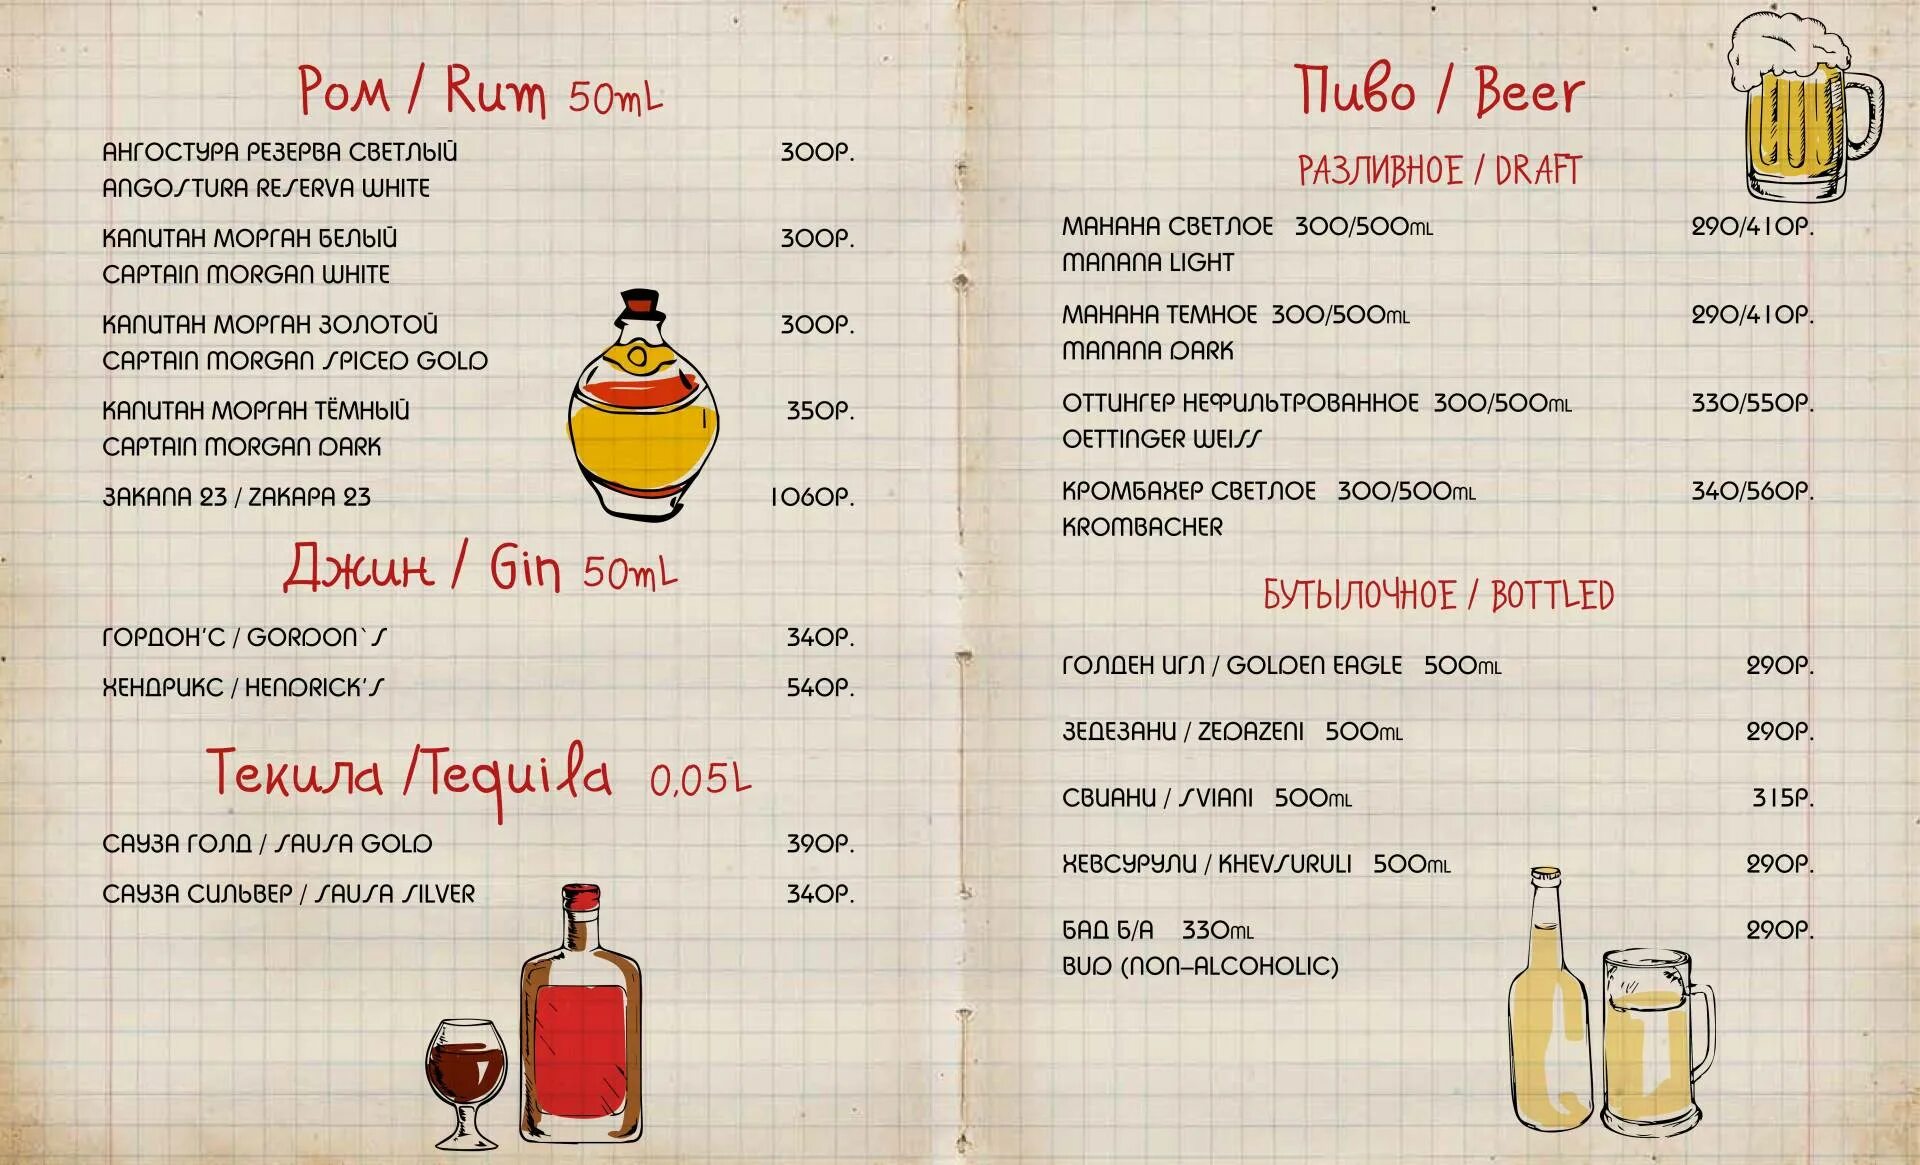 Ром / Rum 50mL
АНГОСТУРА РЕЗЕРВА СВЕТЛЫЙ 300Р.
ANGOSTURA RESERVA WHITE
КАПИТАН МОРГАН БЕЛЫЙ 300Р.
CAPTAIN MORGAN WHITE
КАПИТАН МОРГАН ЗОЛОТОЙ 300Р.
CAPTAIN MORGAN SPICED GOLD
КАПИТАН МОРГАН ТЁМНЫЙ 350Р.
CAPTAIN MORGAN DARK
ЗАКАПА 23 / ZAKAPA 23 1060Р.
Джин / Gin 50mL
ГОРДОН'С / GORDON`S 340Р.
ХЕНДРИКС / HENDRICK'S 540Р.
Текила /Tequila 0,05L
САУЗА ГОЛД / SAUSA GOLD 390Р.
САУЗА СИЛЬВЕР / SAUSA SILVER 340Р.
Пиво / Beer
РАЗЛИВНОЕ / DRAFT
МАНАНА СВЕТЛОЕ 300/500ML 290/410Р.
MANANA LIGHT
МАНАНА ТЕМНОЕ 300/500ML 290/410Р.
MANANA DARK
ОТТИНГЕР НЕФИЛЬТРОВАННОЕ 300/500ML 330/550Р.
OETTINGER WEISS
КРОМБАХЕР СВЕТЛОЕ 300/500ML 340/560Р.
KROMBACHER
БУТЫЛОЧНОЕ / BOTTLED
ГОЛДЕН ИГЛ / GOLDEN EAGLE 500ML 290Р.
ЗЕДЕЗАНИ / ZEDAZENI 500ML 290Р.
СВИАНИ / SVIANI 500ML 315Р.
ХЕВСУРУЛИ / KHEVSURULI 500ML 290Р.
БАД Б/А 330ML 290Р.
BUD (NON-ALCOHOLIC)